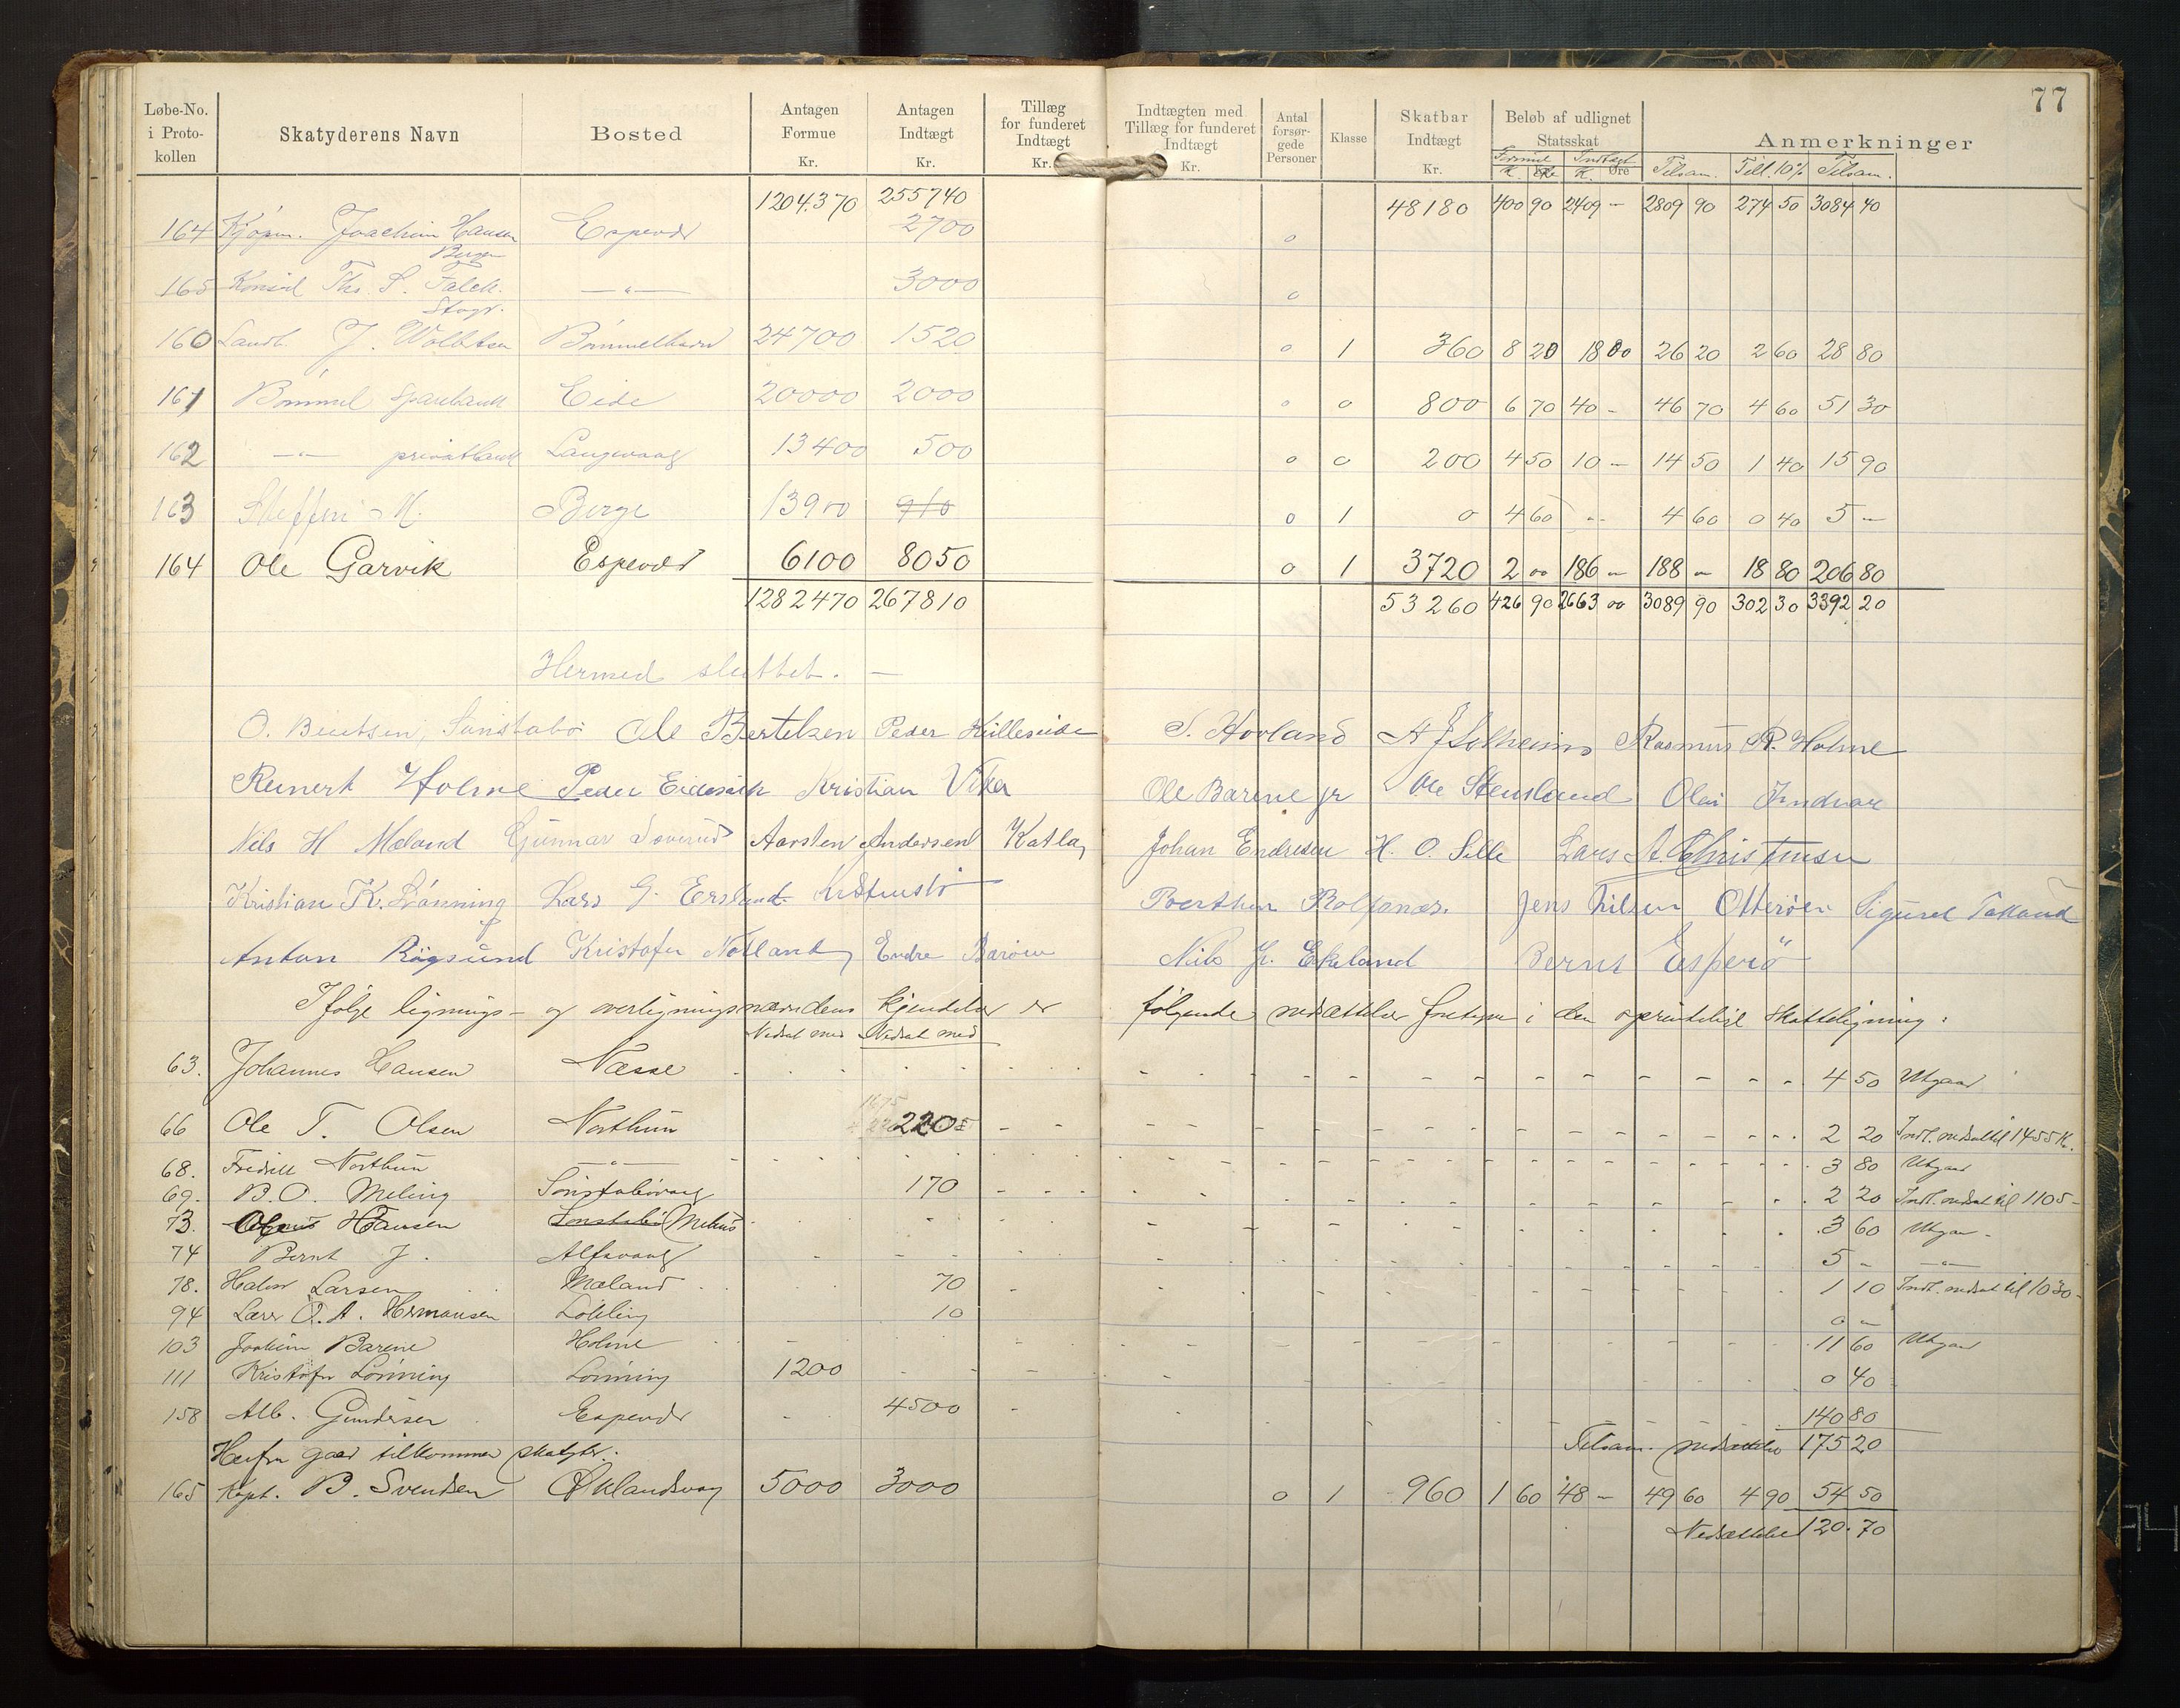 77
Løbe-No. i Proto-kollen | Skatyderens Navn | Bosted | Antagen Formue Kr. | Antagen Indtægt Kr. | Tillæg for funderet Indtægt Kr. | Indtægten med Tillæg for funderet Indtægt Kr. | Antal forsør-gede Personer | Klasse | Skatbar Indtægt Kr. | Beløb af udlignet Statsskat Formue K. Øre Indtægt K. Øre | Anmerkninger Tilsam. Till. 10% Tilsam.
1204370 255740 48180 400 90 2409 – 2809 90 274 50 3084 40
164 Kjøpm. Joachim Hansen Bergen Espevær 2700 0
165 Konsul Ths. S. Falck. Stvgr. —„— 3000 0
160 Landh. J. Bømmelhavn 24700 1520 0 1 360 8 20 18 00 26 20 2 60 28 80
161 Bømmel Sparebank Eide 20000 2000 0 0 800 6 70 40 – 46 70 4 60 51 30
162 —„— privatbank Langevaag 13400 500 0 0 200 4 50 10 – 14 50 1 40 15 90
163 Steffen M. Berge 13900 910 0 1 0 4 60 – 4 60 0 40 5 –
164 Ole Garvik Espevær 6100 8050 0 1 3720 2 00 186 – 188 – 18 80 206 80
1282470 267810 53260 426 90 2663 00 3089 90 302 30 3392 20
Hermed sluttet. —
O. Bentsen, Sønstabø Ole Bertelsen Peder Hilleseide S. Hovland A J Solheim Rasmus R. Holme
Reinert Holme Peder Eidesvik Kristian Vika Ole Barene jr Ole Stensland Olai Indvær
Nils H Mæland Gunnar Aarsten Andersen Katla, Johan Endresen H. O. Lars A. Christensen
Kristian K. Lønning Lars G. Ersland Jens Nilsen Otterøen Sigurd
Anton Røgsund Kristofer Notland, Endre Barøen Nils J. Ekeland Bernt Esperø
Ifølge lignings- og overligningsnævndens kjendelser er følgende nedsættelser foretagne i den oprindelige skatteligning:
Nedsat med Nedsat med
63. Johannes Hansen Næsse 4 50 Utgaar
66 Ole T. Olsen Northun 220 2 20 Indt. nedsat til 1455 K.
68. Fredrik Northun —„— 3 80 Utgaar
69. B. O. Meling Sønstabøvaag 170 2 20 Indt. nedsat til 1105 –
73. Hansen Sønstabø Melus 3 60 Utgaar
74 Bernt J. Alfsvaag 5 – —„—
78. Halvor Larsen Mæland 70 1 10 Indt. nedsat til 1030 –
94 Lars O. A. Hermansen Løkling 10 0 –
103 Joakim Barene Holme 11 60 Utgaar
111 Kristofer Lønning Lønning 1200 0 40
158 Alb. Gundersen Espevær 4500 140 80
Herfra gaar tilkommne skatyder. Tilsam. nedsættelse 175 20
165 Kapt. B. Svendsen Øklandsvaag 5000 3000 0 1 960 1 60 48 – 49 60 4 90 54 50
Nedsættelse 120.70